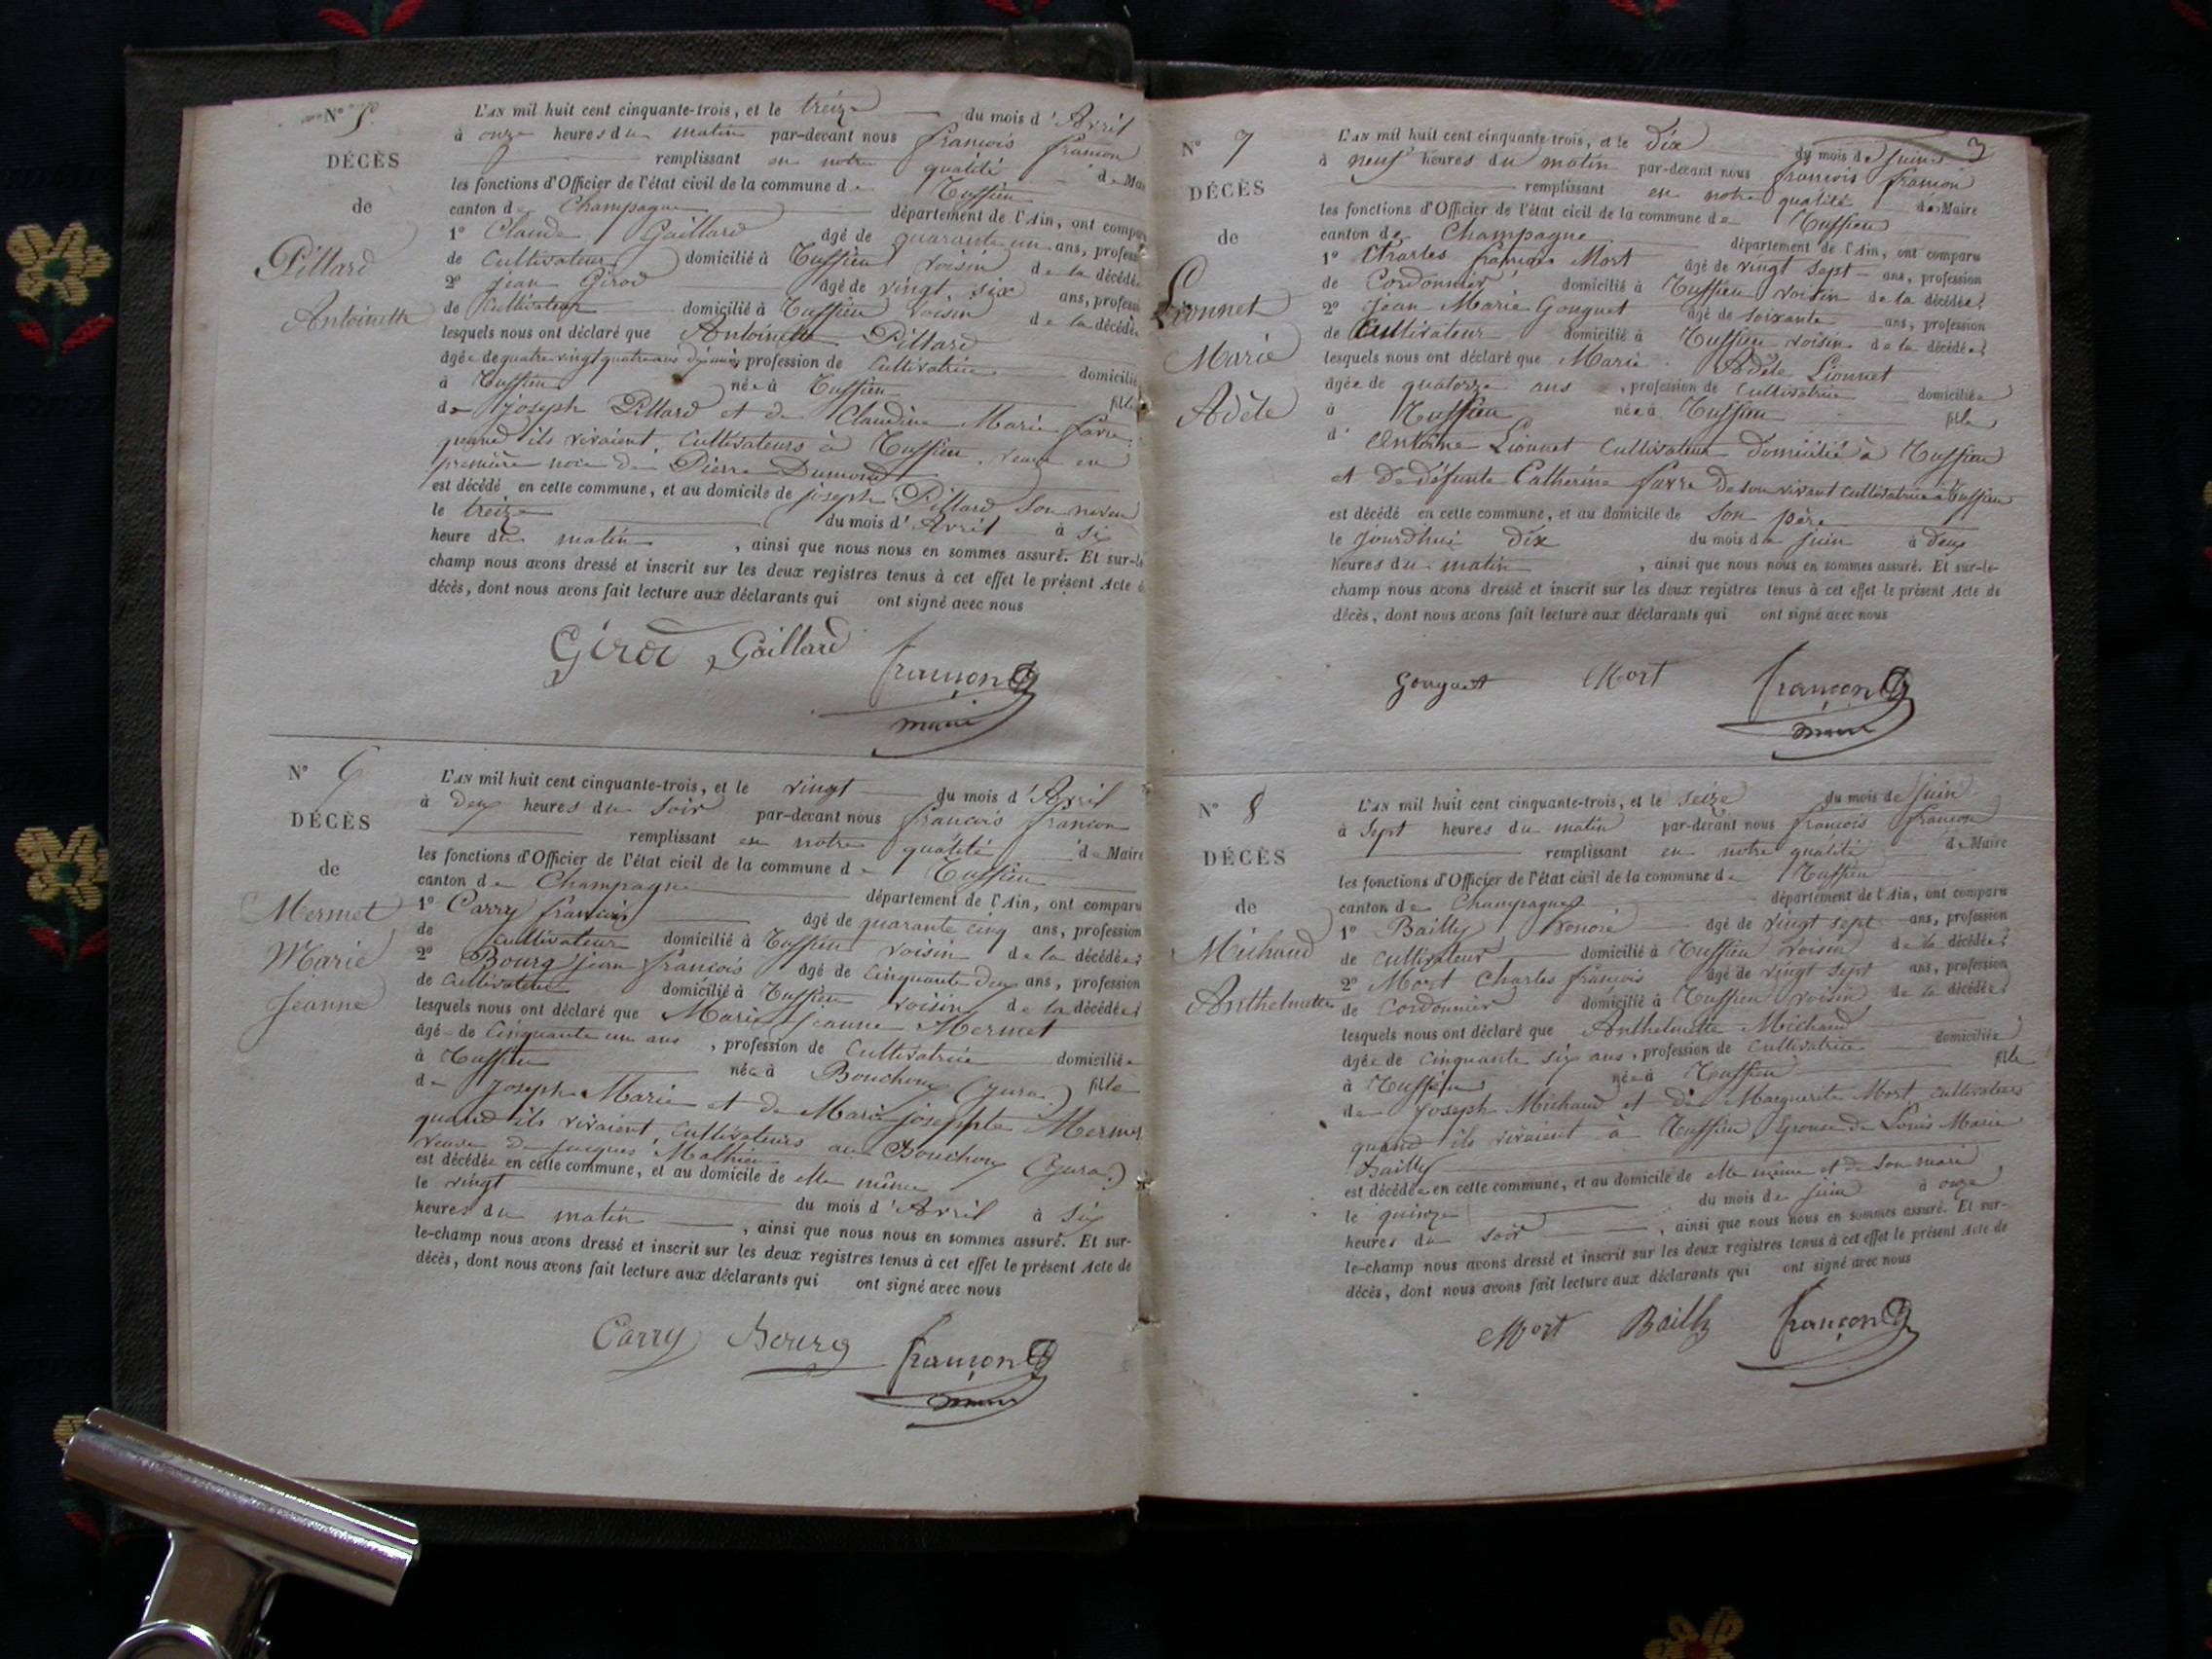 N° 5.
DÉCÈS
de
Pillard
Antoinette
L'AN mil huit cent cinquante-trois, et le treize du mois d'Avril
à onze heures du matin par-devant nous françois françon
remplissant en notre qualité de Mai
les fonctions d'Officier de l'état civil de la commune de Tussieu
canton de Champagne département de l'Ain, ont compa
1° Claude Gaillard âgé de quarante un ans, profess
de Cultivateur domicilié à Tussieu voisin de la décédé
2° jean Girod âgé de vingt six ans, profess
de Cultivateur domicilié à Tussieu voisin de la décédé
lesquels nous ont déclaré que Antoinette Pillard
âgée de quatre vingt quatre ans , profession de Cultivatrice domicilié
à Tussieu née à Tussieu fille
de joseph Pillard et de Claudine Marie favre
quand ils vivaient, Cultivateurs à Tussieu, veuve en
première noce de Pierre Dumond
est décédé en cette commune, et au domicile de joseph Pillard son neveu
le treize du mois d'Avril à six
heure du matin , ainsi que nous nous en sommes assuré. Et sur-le
champ nous avons dressé et inscrit sur les deux registres tenus à cet effet le présent Acte d
décès, dont nous avons fait lecture aux déclarants qui ont signé avec nous
Girod Gaillard françon
maire
N° 6
DÉCÈS
de
Mermet
Marie
jeanne
L'AN mil huit cent cinquante-trois, et le vingt du mois d'Avril
à deux heures du soir par-devant nous françois françon
remplissant en notre qualité de Maire
les fonctions d'Officier de l'état civil de la commune de Tussieu
canton de Champagne département de l'Ain, ont comparu
1° Carry françois âgé de quarante cinq ans, profession
de cultivateur domicilié à Tussieu voisin de la décédée;
2° Bourg jean françois âgé de Cinquante deux ans, profession
de Cultivateur domicilié à Tussieu voisin de la décédée;
lesquels nous ont déclaré que Marie jeanne Mermet
âgé de Cinquante un ans , profession de Cultivatrice domiciliée
à Tussieu née à Bouchoux (jura) fille
de joseph Marie et de Marie josephte Mermet
quand ils vivaient, cultivateurs au Bouchoux (jura)
veuve de jacques Mathieu
est décédée en cette commune, et au domicile de elle même
le vingt du mois d'Avril à six
heures du matin , ainsi que nous nous en sommes assuré. Et sur-
le-champ nous avons dressé et inscrit sur les deux registres tenus à cet effet le présent Acte de
décès, dont nous avons fait lecture aux déclarants qui ont signé avec nous
Carry Bourg françon
maire
3
N° 7
DÉCÈS
de
Lionnet
Marie
Adèle
L'AN mil huit cent cinquante-trois, et le dix du mois de juin
à neuf heures du matin par-devant nous françois françon
remplissant en notre qualité de Maire
les fonctions d'Officier de l'état civil de la commune de Tussieu
canton de Champagne département de l'Ain, ont comparu
1° Charles françois Mort âgé de vingt sept ans, profession
de Cordonnier domicilié à Tussieu voisin de la décédée;
2° jean Marie Gouguet âgé de soixante ans, profession
de Cultivateur domicilié à Tussieu voisin de la décédée;
lesquels nous ont déclaré que Marie Adèle Lionnet
âgée de quatorze ans , profession de cultivatrice domiciliée
à Tussieu née à Tussieu fille
d' Antoine Lionnet Cultivateur domicilié à Tussieu
et de défunte Catherine favre de son vivant cultivatrice à Tussieu
est décédé en cette commune, et au domicile de son père
le jourdhui dix du mois de juin à deux
heures du matin , ainsi que nous nous en sommes assuré. Et sur-le-
champ nous avons dressé et inscrit sur les deux registres tenus à cet effet le présent Acte de
décès, dont nous avons fait lecture aux déclarants qui ont signé avec nous
Gouguet Mort françon
maire
N° 8
DÉCÈS
de
Michaud
Anthelmette
L'AN mil huit cent cinquante-trois, et le seize du mois de juin
à sept heures du matin par-devant nous françois françon
remplissant en notre qualité de Maire
les fonctions d'Officier de l'état civil de la commune de Tussieu
canton de Champagne département de l'Ain, ont comparu
1° Bailly honoré âgé de vingt sept ans, profession
de cultivateur domicilié à Tussieu voisin de la décédée;
2° Mort Charles françois âgé de vingt sept ans, profession
de Cordonnier domicilié à Tussieu voisin de la décédée;
lesquels nous ont déclaré que Anthelmette Michaud
âgée de cinquante six ans, profession de Cultivatrice domiciliée
à Tussieu née à Tussieu fille
de joseph Michaud et de Marguerite Mort, cultivateurs
quand ils vivaient à Tussieu, Epouse de Louis Marie
Bailly
est décédée en cette commune, et au domicile de elle même et de son mari
le quinze du mois de juin à onze
heures du soir , ainsi que nous nous en sommes assuré. Et sur-
le-champ nous avons dressé et inscrit sur les deux registres tenus à cet effet le présent Acte de
décès, dont nous avons fait lecture aux déclarants qui ont signé avec nous
Mort Bailly françon